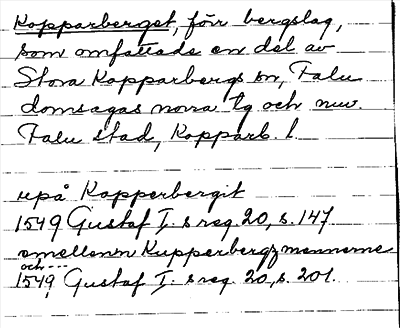 Kopparberget, förr bergslag,
som omfattade en del av
Stora Kopparbergs sn, Falu
domsagas norra tg och nuv.
Falu stad, Kopparb. l.
upå Kopperbergit
1549 Gustaf I. s reg. 20, s. 147.
emellenn Kupperbergzmennerne
och ---
1549, Gustaf I. s reg. 20, s. 201.